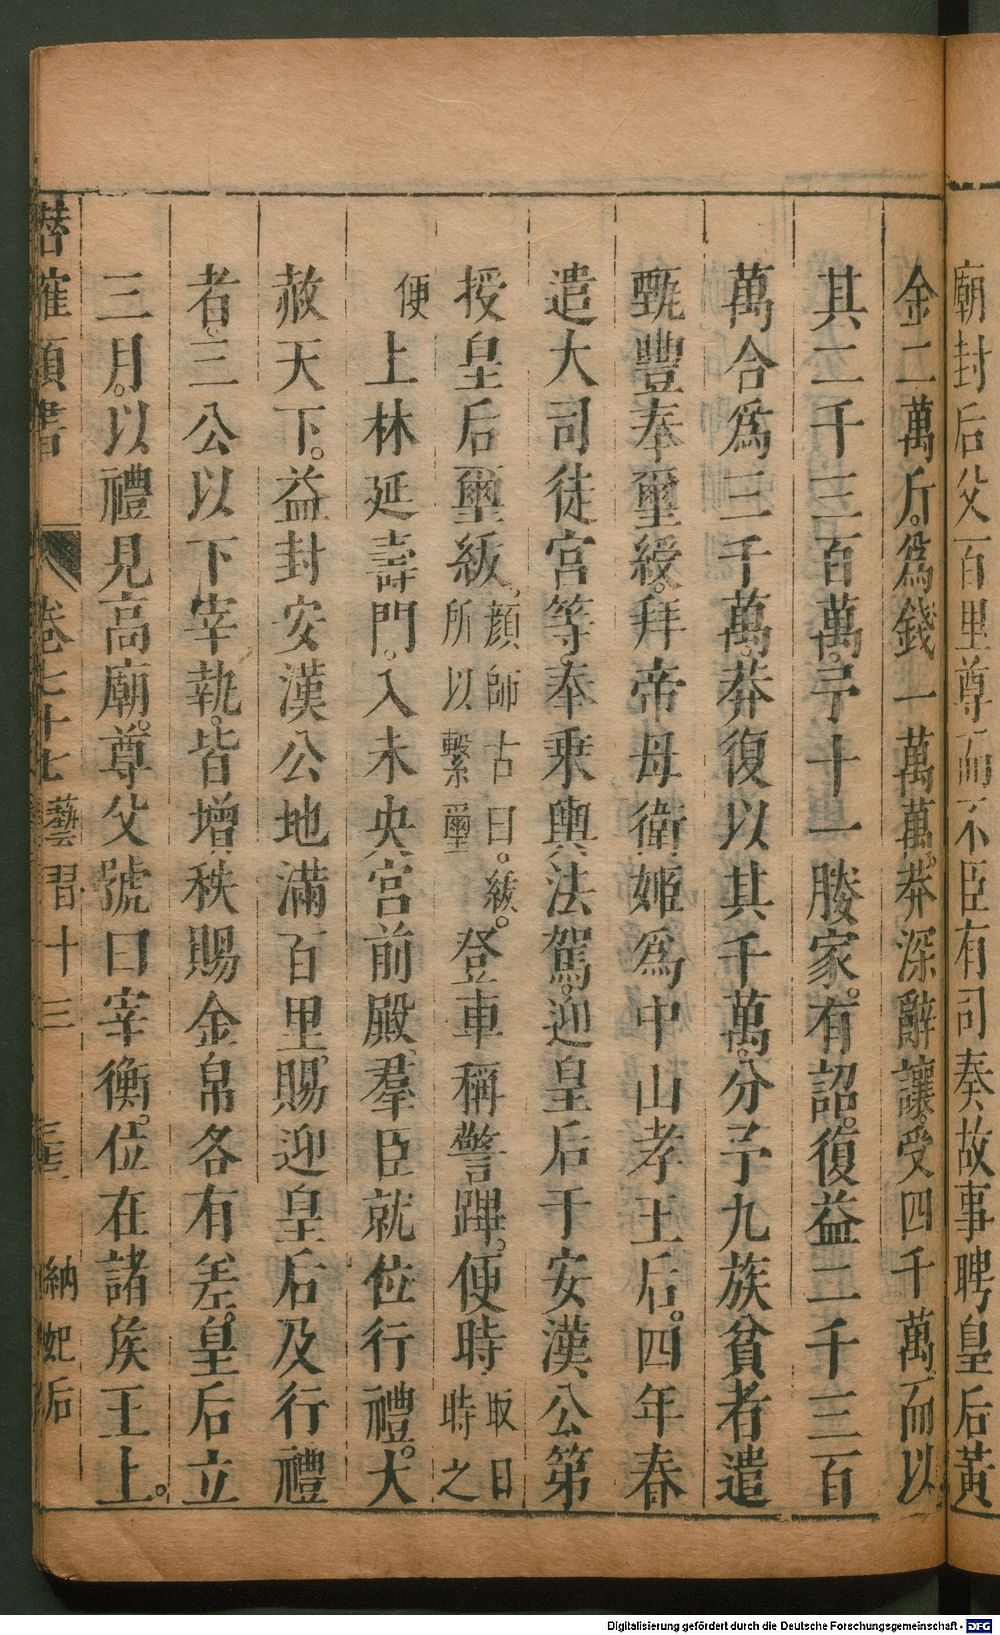 廟封后父百里尊而不臣有司奏故事聘皇后黃
金二萬斤。爲錢一萬萬。莽深辭讓。受四千萬。而以
其二千三百萬。予十一媵家。有詔。復益二千三百
萬合爲三千萬。莽復以其千萬。分予九族貧者遣
甄豐奉璽綬。拜帝母衛姬爲中山孝王后。四年春
遣大司徒宮等。奉乘輿法駕。迎皇后于安漢公第
授皇后璽紱。顏師古曰。紱。所以繫璽登車稱警蹕。便時取日時之
便上林延壽門。入未央宮前殿。羣臣就位行禮。大
赦天下。益封安漢公地滿百里。賜迎皇后及行禮
者。三公以下宰執。皆增秩賜金帛各有差。皇后立
三月。以禮見高廟。尊父號曰宰衡。位在諸矦王上。
潛確類書 卷七十七 藝習十三 納妃后
Digitalisierung gefördert durch die Deutsche Forschungsgemeinschaft - DFG